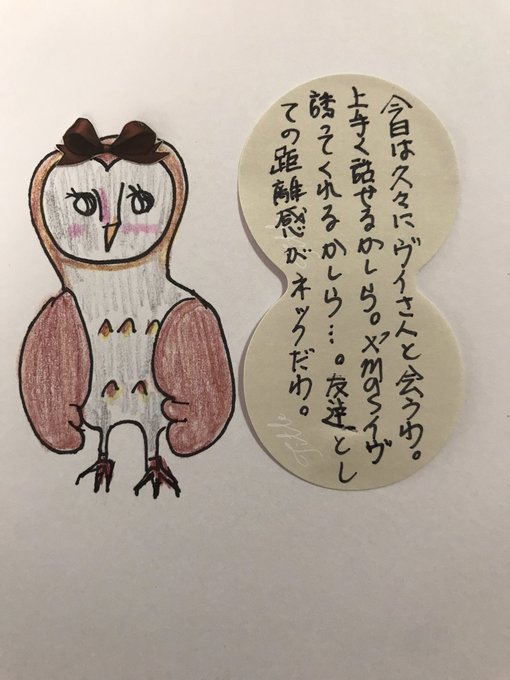 今日は久々にヴィさんと会うわ。
上手く話せるかしら。X'masイヴ
誘ってくれるかしら…。友達とし
ての距離感がネックだわ。